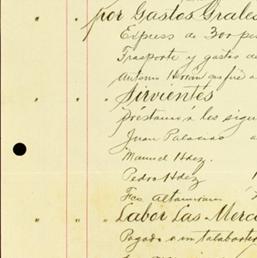 por Gastos Grales
Express de 300 pe
Trasporte y gastos de
Antonio Horán que fué a
" " Sirvientes
préstamo a los sigu
Juan Palacios a
Manuel Hdez.
Pedro Hdez 1
Fco Altamirano
" " Labor Las Merce
Pagado a un talabarter